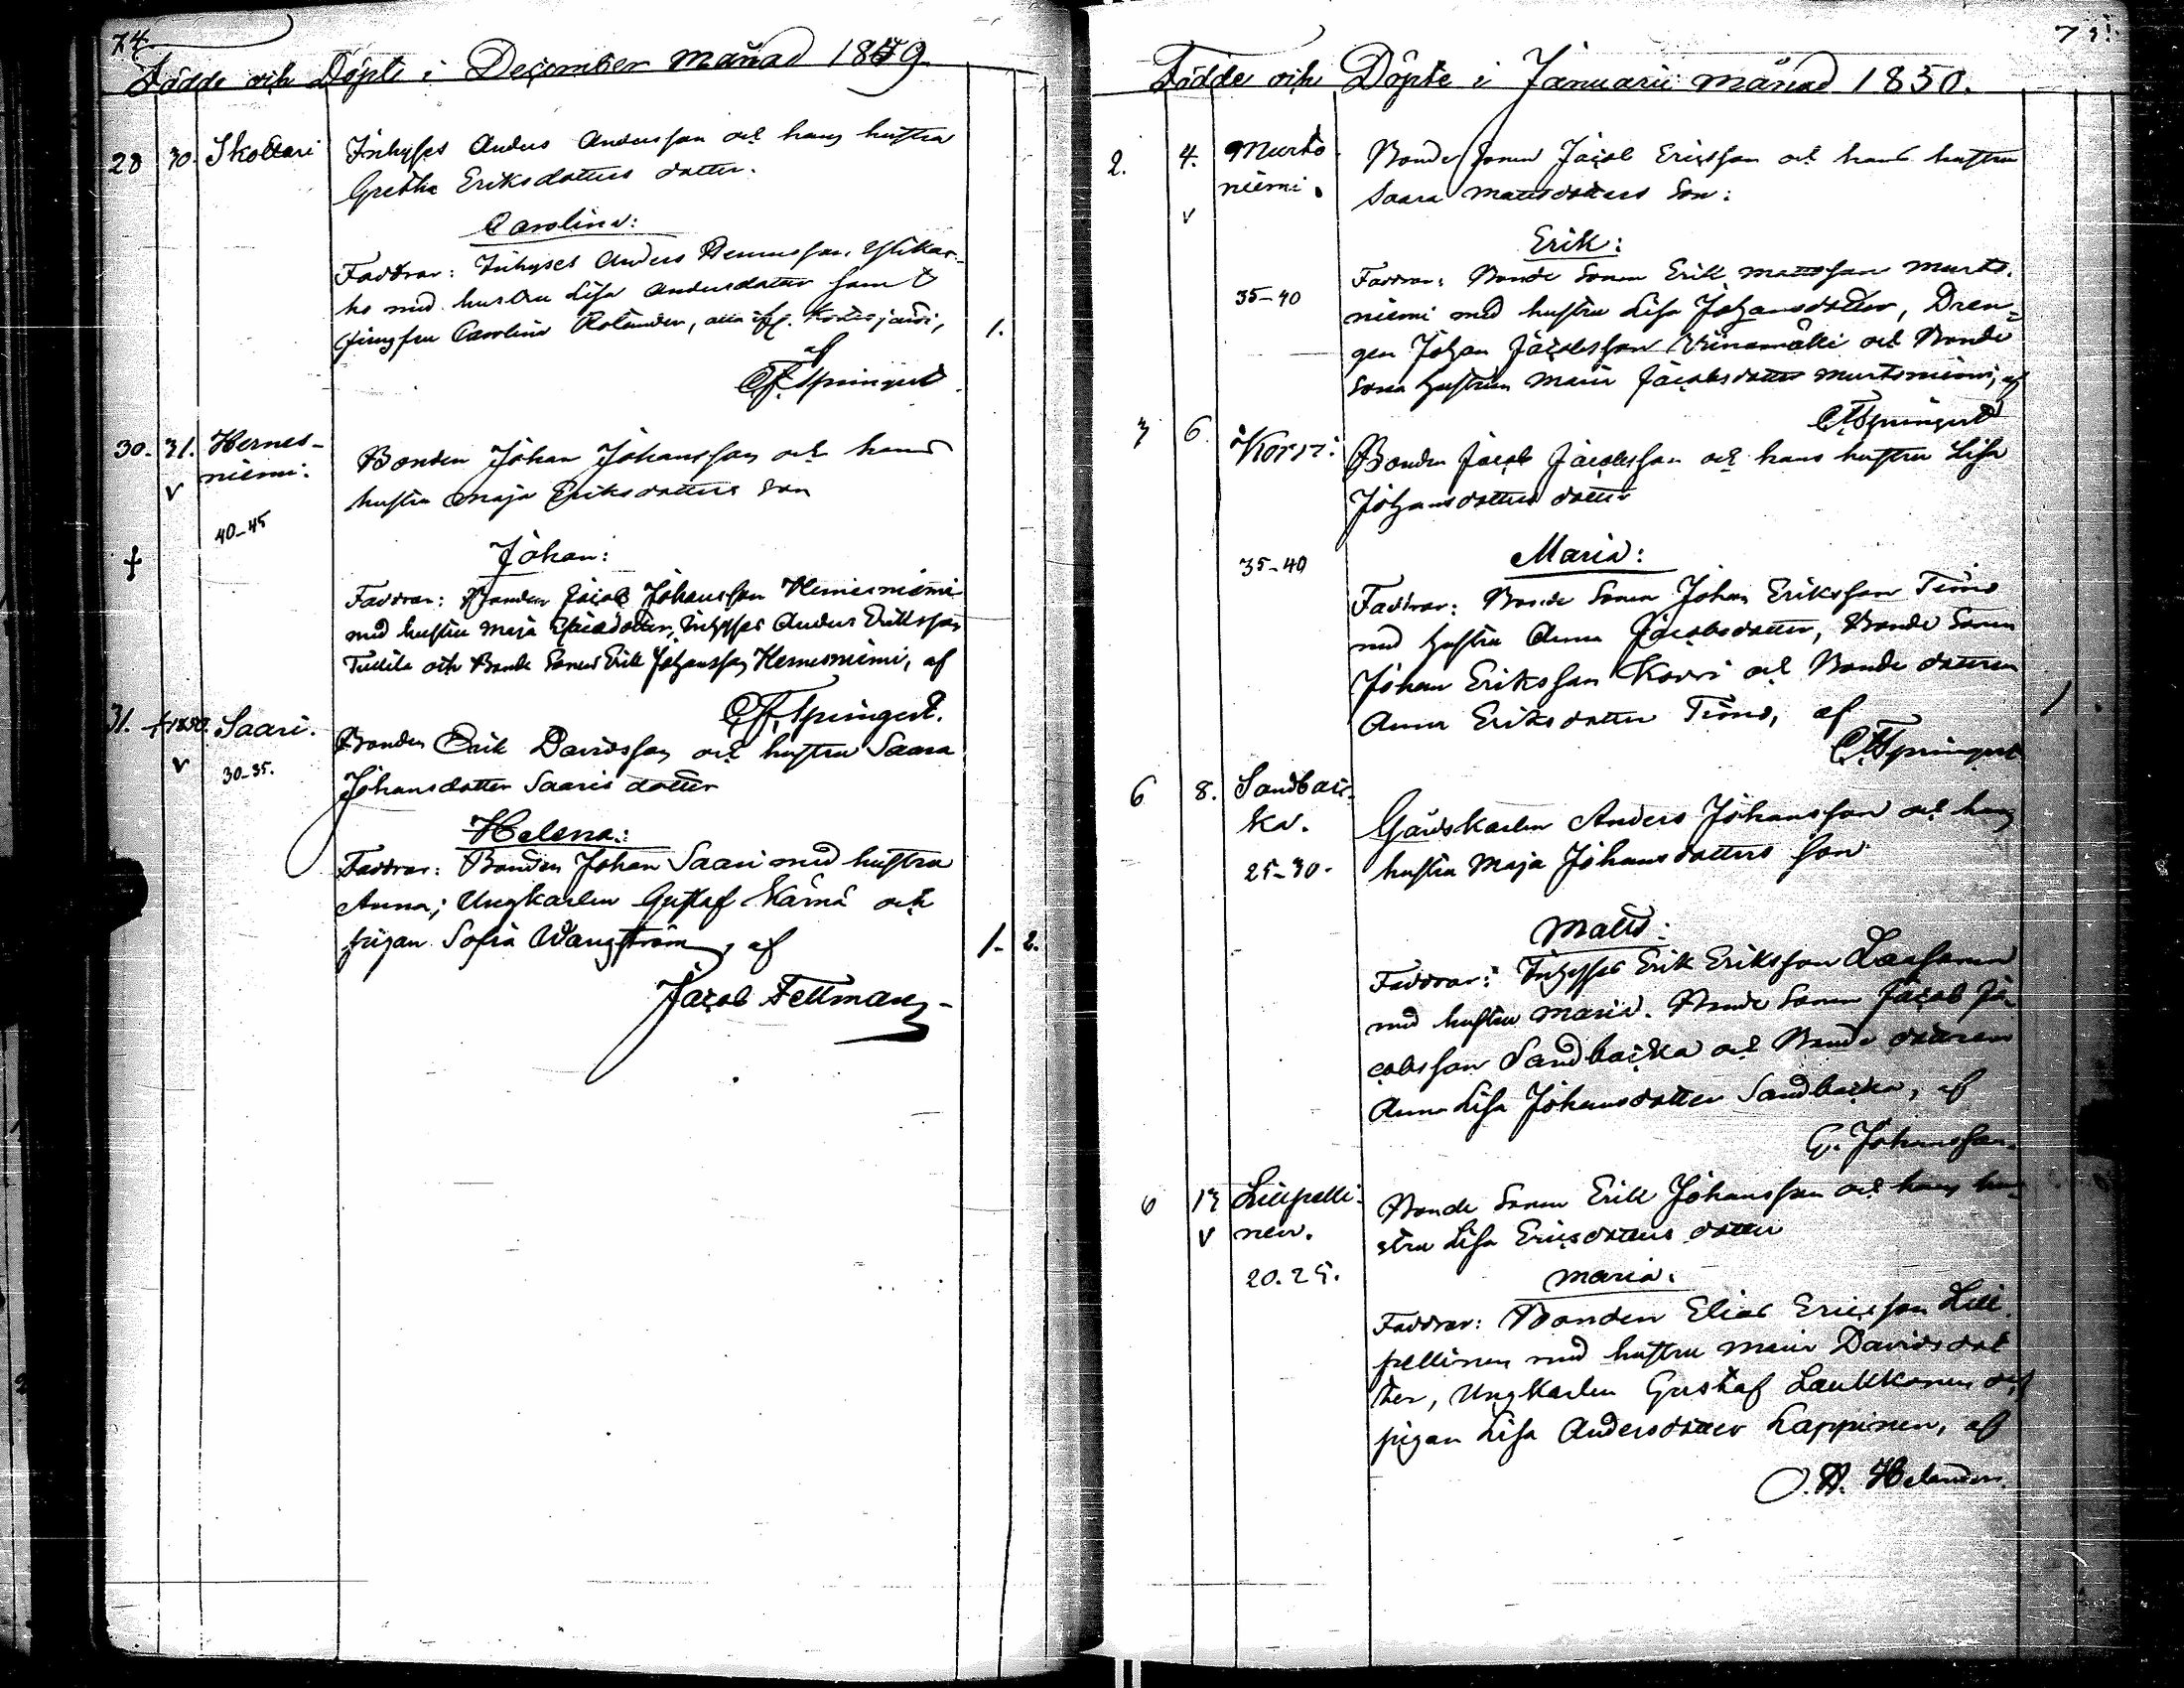 74
Födde och Döpte i December månad 1849
28 30. Skottari Inhyses Anders Andersson och hans hustru
Gretha Eriksdotters dotter.
Carolina:
Faddrar: Inhyses Anders
med hustru Lisa Andersdotter samt
jungfru Carolina, af 1.
C.F. Springert
30. 31. Hernes- Bonden Johan Johansson och hans
v niemi. hustru Maja Eriksdotters son
40-45
† Johan:
Faddrar: Bonden Jacob Johansson Hernesniemi
med hustru Maja, Inhyses Anders Eriksson
och Bonde Sonen Erik Johansson Hernesniemi, af
C.F. Springert.
31. 1850. Saari. Bonden Erik Davidsson och hustru Saara
v 30-35. Johansdotter Saaris dotter
Helena:
Faddrar: Bonden Johan Saari med hustru
Anna; Ungkarlen Gustaf Kärnä och
pigan Sofia Wangström, af 1. 2.
Jacob Fellman
Födde och Döpte i Januarii månad 1850.
2. 4. Murto- Bonde Sonen Jacob Ericsson och hans hustru
niemi. Saara Mattsdotters Son:
v
Erik:
35-40 Faddrar: Bonde Sonen Erik Mattsson Murto-
niemi med hustru Lisa Johansdotter, Dren-
gen Johan Jacobsson Viinamäki och Bonde
Sona hustrun Maria Jacobsdotter Murtoniemi, af
C.F. Springert
3 6 Korri: Bonden Jacob Jacobsson och hans hustru Lisa
Johansdotters dotter
Maria:
35-40
Faddrar: Bonde Sonen Johan Eriksson Timo
med hustru Anna Jacobsdotter, Bonde Sonen
Johan Eriksson Korri och Bonde dottren
Anna Eriksdotter Timo, af 1
C.F. Springert
6 8. Sandbac-
ka. Gårdskarlen Anders Johansson och hans
25-30. hustru Maja Johansdotters son
Matts:
Faddrar: Inhyses Erik Eriksson
med hustru Maria. Bonde Sonen Jacob Ja-
cobsson Sandbacka och Bonde dottren
Anna Lisa Johansdotter Sandbacka, af
G. Johansson.
6 13 Lillpelli- Bonde Sonen Erik Johansson och hans hu-
v nen. stru Lisa Ericsdotters dotter
20.25. Maria.
Faddrar: Bonden Elias Ericsson Lill-
pellinen med hustru Maria Davidsdot
ter, Ungkarlen Gustaf Laukkanen och
pigan Lisa Andersdotter Lappinen, af
O.A. Helander.